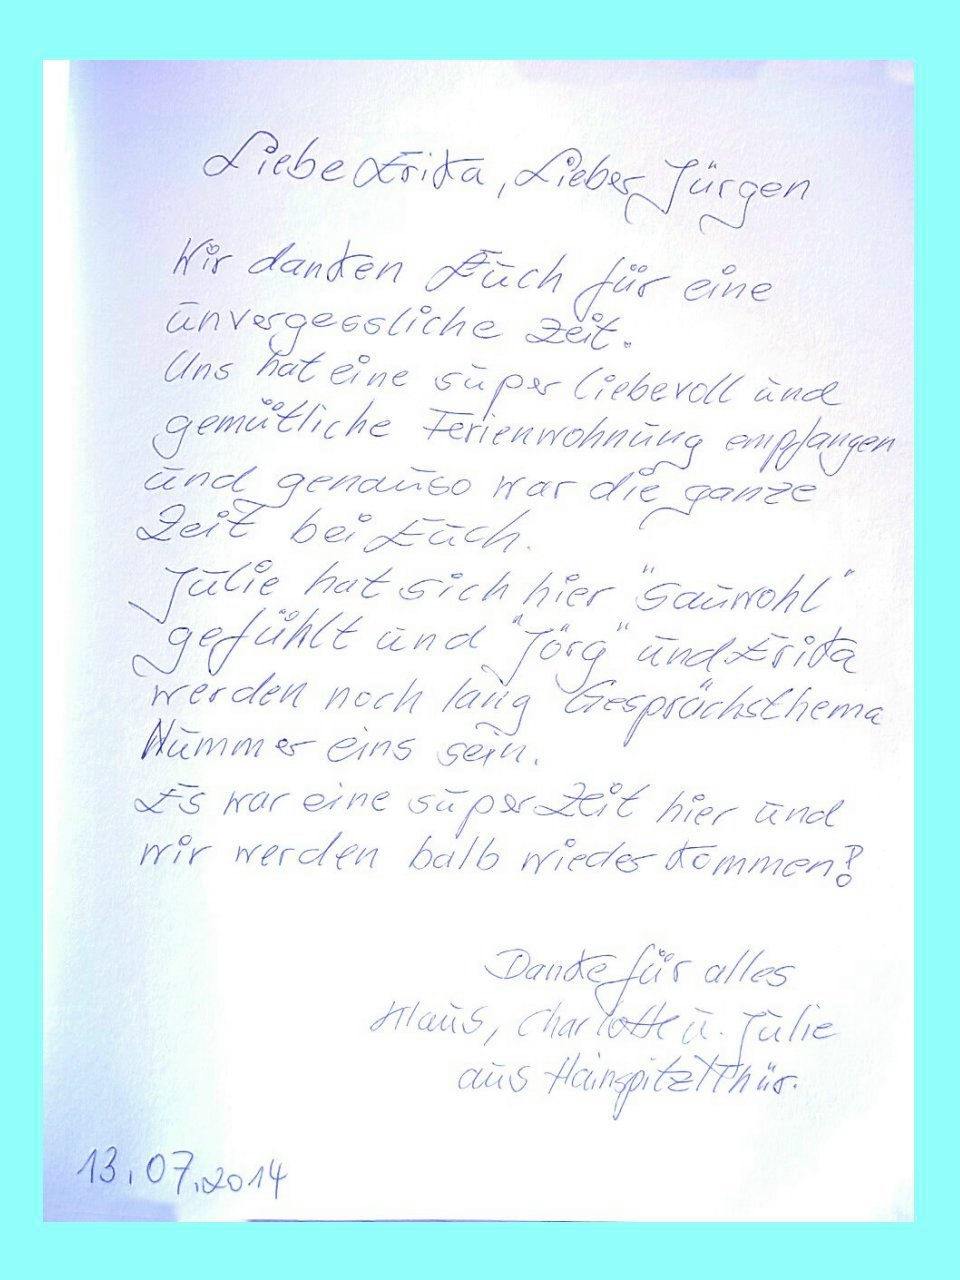 Liebe Erika, Lieber Jürgen
Wir danken Euch für eine
unvergessliche Zeit.
Uns hat eine super liebevoll und
gemütliche Ferienwohnung empfangen
und genauso war die ganze
Zeit bei Euch.
Julie hat sich hier "sauwohl"
gefühlt und "Jörg" und Erika
werden noch lang Gesprächsthema
Nummer eins sein.
Es war eine super Zeit hier und
wir werden balb wieder kommen!
Danke für alles
Klaus, Charlotte u. Julie
aus Hainspitz/Thür.
13.07.2014